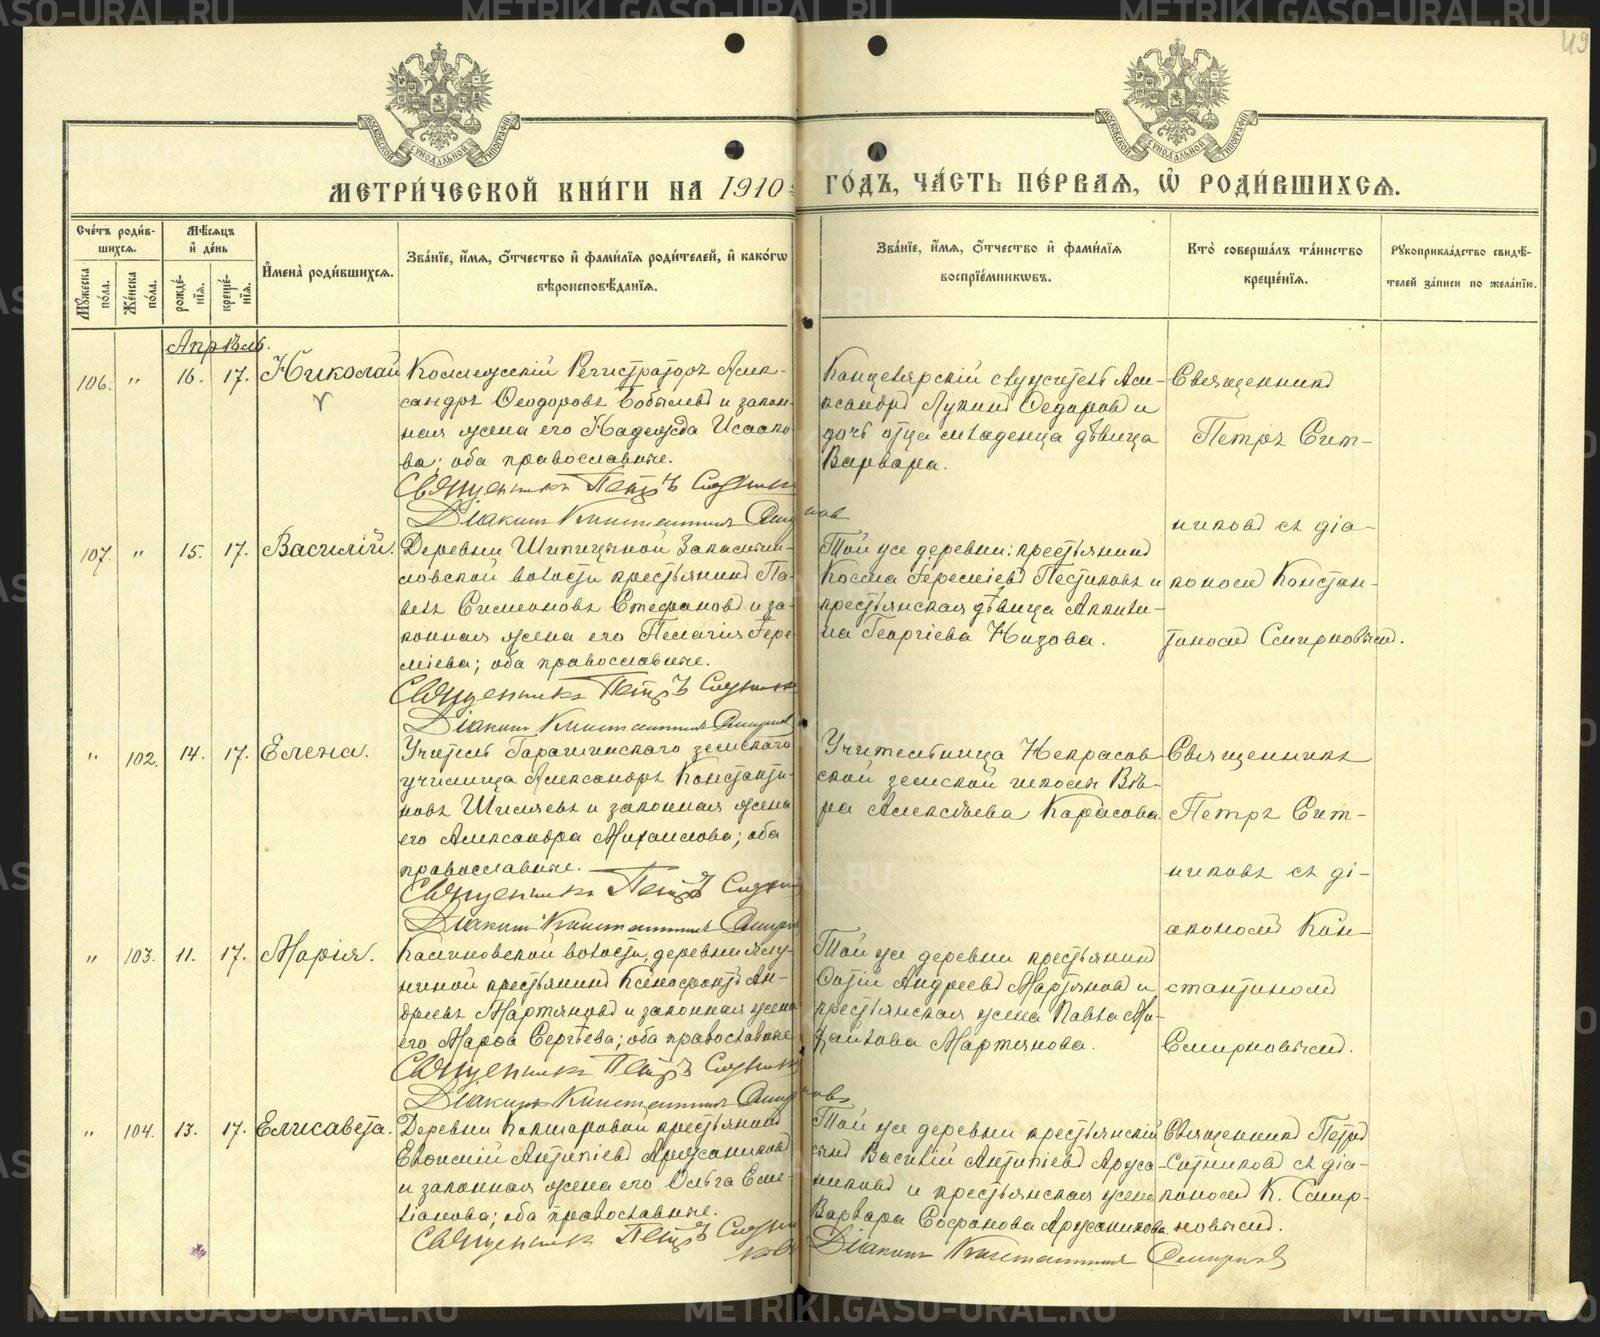 МЕТРИ́ЧЕСКОЙ КНИ́ГИ НА 1910
ГО́ДЪ, ЧА́СТЬ ПЕ́РВАѦ, Ѡ РОДИ́ВШИХСѦ.
49
МОСКОВСКОЙ СѴНОДАЛЬНОЙ ТИПОГРАФІИ
МОСКОВСКОЙ СѴНОДАЛЬНОЙ ТИПОГРАФІИ
Сче́тъ роди́в-
шихсѧ.
Мꙋ́жеска по́ла.
Же́нска по́ла.
Мѣ́сѧцъ
и де́нь
рожде́-
нїѧ.
креще́-
нїѧ.
Имена̀ роди́вшихсѧ.
Зва́нїе, и́мѧ, о́тчество и фами́лїѧ роди́телей, и како́гѡ
вѣроисповѣ́данїѧ.
Зва́нїе, и́мѧ, о́тчество и фами́лїѧ
воспрїе́мникѡвъ.
Кто̀ соверша́лъ та́инство
креще́нїѧ.
Рꙋкоприкла́дство свидѣ́-
телей за́писи по жела́нїю.
Апрѣль.
106. " 16. 17. Николай
Коллежскій Регистраторъ Алек-
сандръ Ѳеодоровъ Бобылевъ и закон-
ная жена его Надежда Исаако-
ва; оба православные.
Священникъ Петръ Ситник
Діаконъ Константинъ Смирнов
Канцелярскій служитель Але-
ксандръ Лукинъ Федоровъ и
дочь отца младенца дѣвица
Варвара.
Священникъ
Петръ Сит-
никовъ съ діа-
кономъ Констан-
тиномъ Смирновымъ.
107. " 15. 17. Василій.
Деревни Шипицыной
ловской волости крестьянинъ Па-
велъ Симеоновъ Стефановъ и за-
конная жена его Пелагія Іере-
міева; оба православные.
Священникъ Петръ Ситник
Діаконъ Константинъ Смирнов
Той же деревни: крестьянинъ
Косма Іереміевъ Пестиковъ и
крестьянская дѣвица Акили-
на Георгіева Низова.
" 102. 14. 17. Елена.
Учитель земскаго
училища Александръ Константи-
новъ Шиляевъ и законная жена
его Александра Михаилова; оба
православные.
Священникъ Петръ Ситник
Діаконъ Константинъ Смирнов
Учительница Некрасов-
ской земской школы Вѣ-
ра Алексѣева Карасова
Священникъ
Петръ Сит-
никовъ съ ді-
акономъ Кон-
стантиномъ
Смирновымъ.
" 103. 11. 17. Марія.
Калиновской волости, деревни
крестьянинъ Ксенофонтъ Ан-
дреевъ Мартяновъ и законная жена
его Марѳа Сергѣева; оба православные
Священникъ Петръ Ситник
Діаконъ Константинъ Смирновъ
Той же деревни крестьянинъ
Фотій Андреевъ Мартяновъ и
крестьянская жена Павла Ми-
хаилова Мартянова.
" 104. 13. 17. Елисавета.
Деревни крестьянинъ
Евѳимій Антипіевъ Аржанниковъ
и законная жена его Ольга Еме-
ліанова; оба православные.
Священникъ Петръ Ситни
ковъ
Той же деревни крестьянскій
сынъ Василій Антипіевъ Аржа-
никовъ и крестьянская жена
Варвара Софонова Аржанникова.
Священникъ Петръ
Ситниковъ съ діа-
кономъ К. Смир-
новымъ.
Діаконъ Константинъ Смирновъ
METRIKI.GASO-URAL.RU